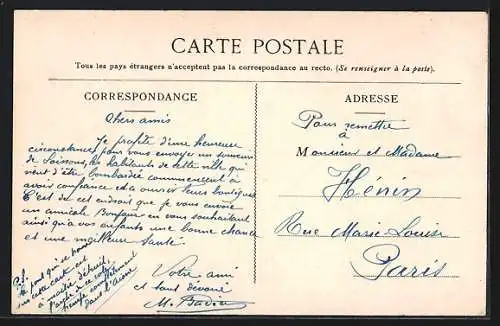 CARTE POSTALE
Tous les pays étrangers n'acceptent pas la correspondance au recto. (Se renseigner à la poste).
CORRESPONDANCE
Chers amis
Je profite d'une heureuse
circonstance pour vous envoyer un souvenir
de Soissons, les habitants de cette ville qui
vient d'être bombardée commencent à
avoir confiance et à ouvrir leurs boutiques
C'est de cet endroit que je vous envoie
un amicale Bonjour en vous souhaitant
ainsi qu'à vos enfants une bonne chance
et une meilleur santé.
Votre ami
et tout dévoué
le pont qui se trouve
sur cette carte est
à moitié détruit,
dans l'Aisne
ADRESSE
Pour remettre
à
Monsieur et Madame
Hénin
Rue Marie Louise
Paris